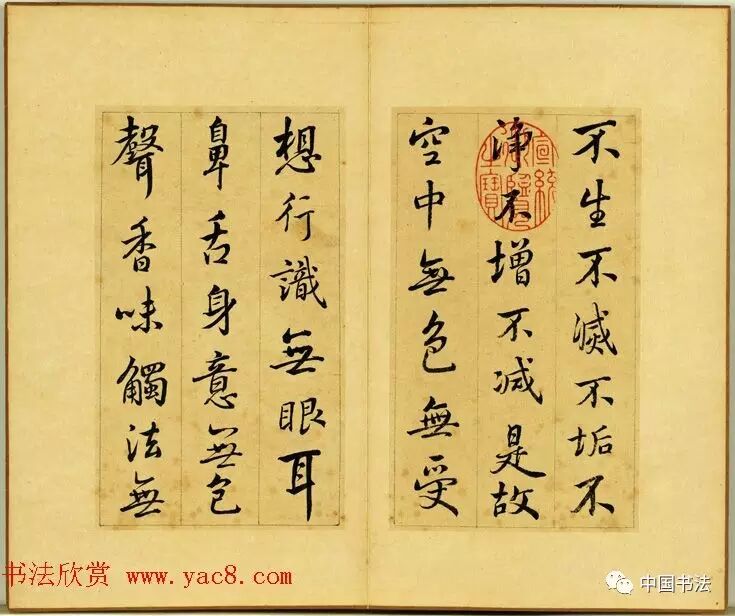 不生不滅不垢不
淨不增不减是故
空中無色無受
想行識無眼耳
鼻舌身意無色
聲香味觸法無
宣統御覽之寶
书法欣赏 www.yac8.com
中国书法